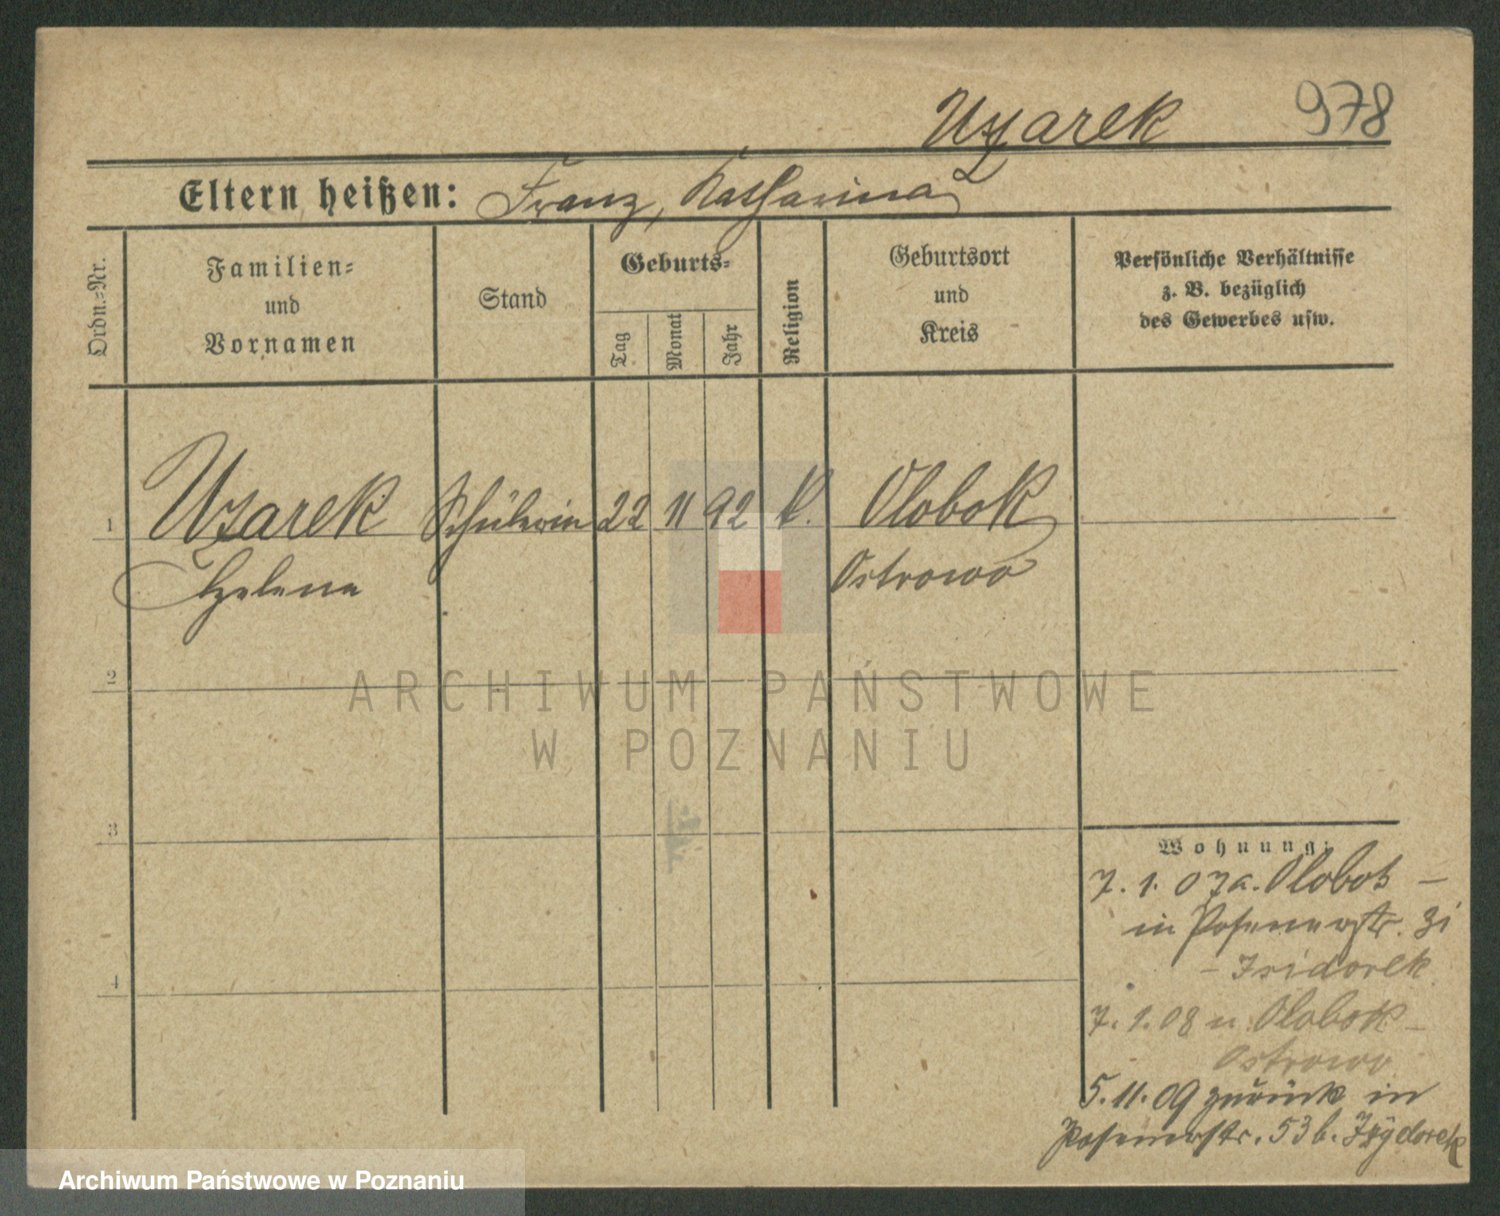 Uzarek 978
Eltern heißen: Franz, Katharina
Ordn.=Nr.
Familien=
und
Vornamen
Stand
Geburts=
Tag
Monat
Jahr
Religion
Geburtsort
und
Kreis
Persönliche Verhältnisse
z. B. bezüglich
des Gewerbes usw.
1 Uzarek Schülerin 22 11 92 k. Olobok
Helena Ostrowo
2
ARCHIWUM PAŃSTWOWE
W POZNANIU
3
Wohnung:
7. 1. 07 a. Olobok –
in Posenerstr. 31
– Isidorek
4
7. 1. 08 n. Olobok –
Ostrowo
5. 11. 09 zurück in
Posenerstr. 53 b. Izydorek
Archiwum Państwowe w Poznaniu